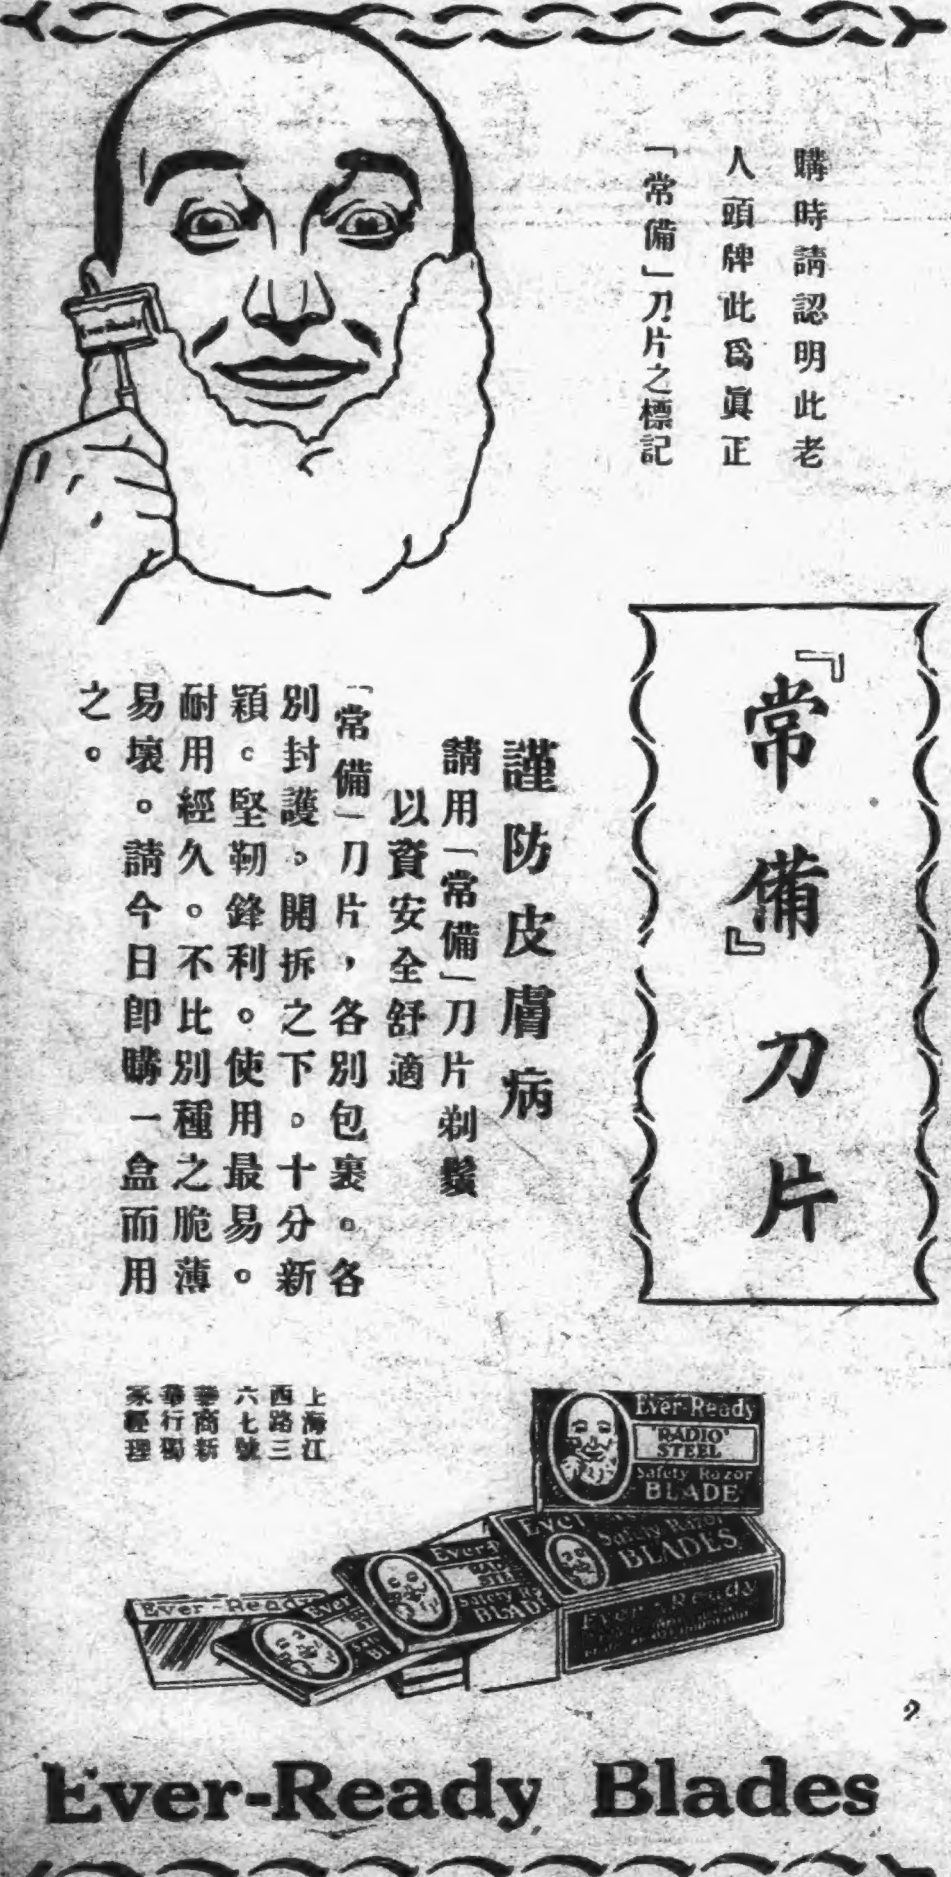 購時請認明此老
人頭牌此爲眞正
「常備」刀片之標記
Ever-Ready
『常備』刀片
謹防皮膚病
請用「常備」刀片剃鬚
以資安全舒適
「常備」刀片，各別包裹。各
別封護。開拆之下。十分新
穎。堅靭鋒利。使用最易。
耐用經久。不比別種之脆薄
易壞。請今日卽購一盒而用
之。
上海江
西路三
六七號
華商新
華行獨
家經理
Ever-Ready
"RADIO"
STEEL
Safety Razor
BLADE
Safety Razor
BLADES
Ever-Ready
Ever-Ready
Ever-Ready Blades